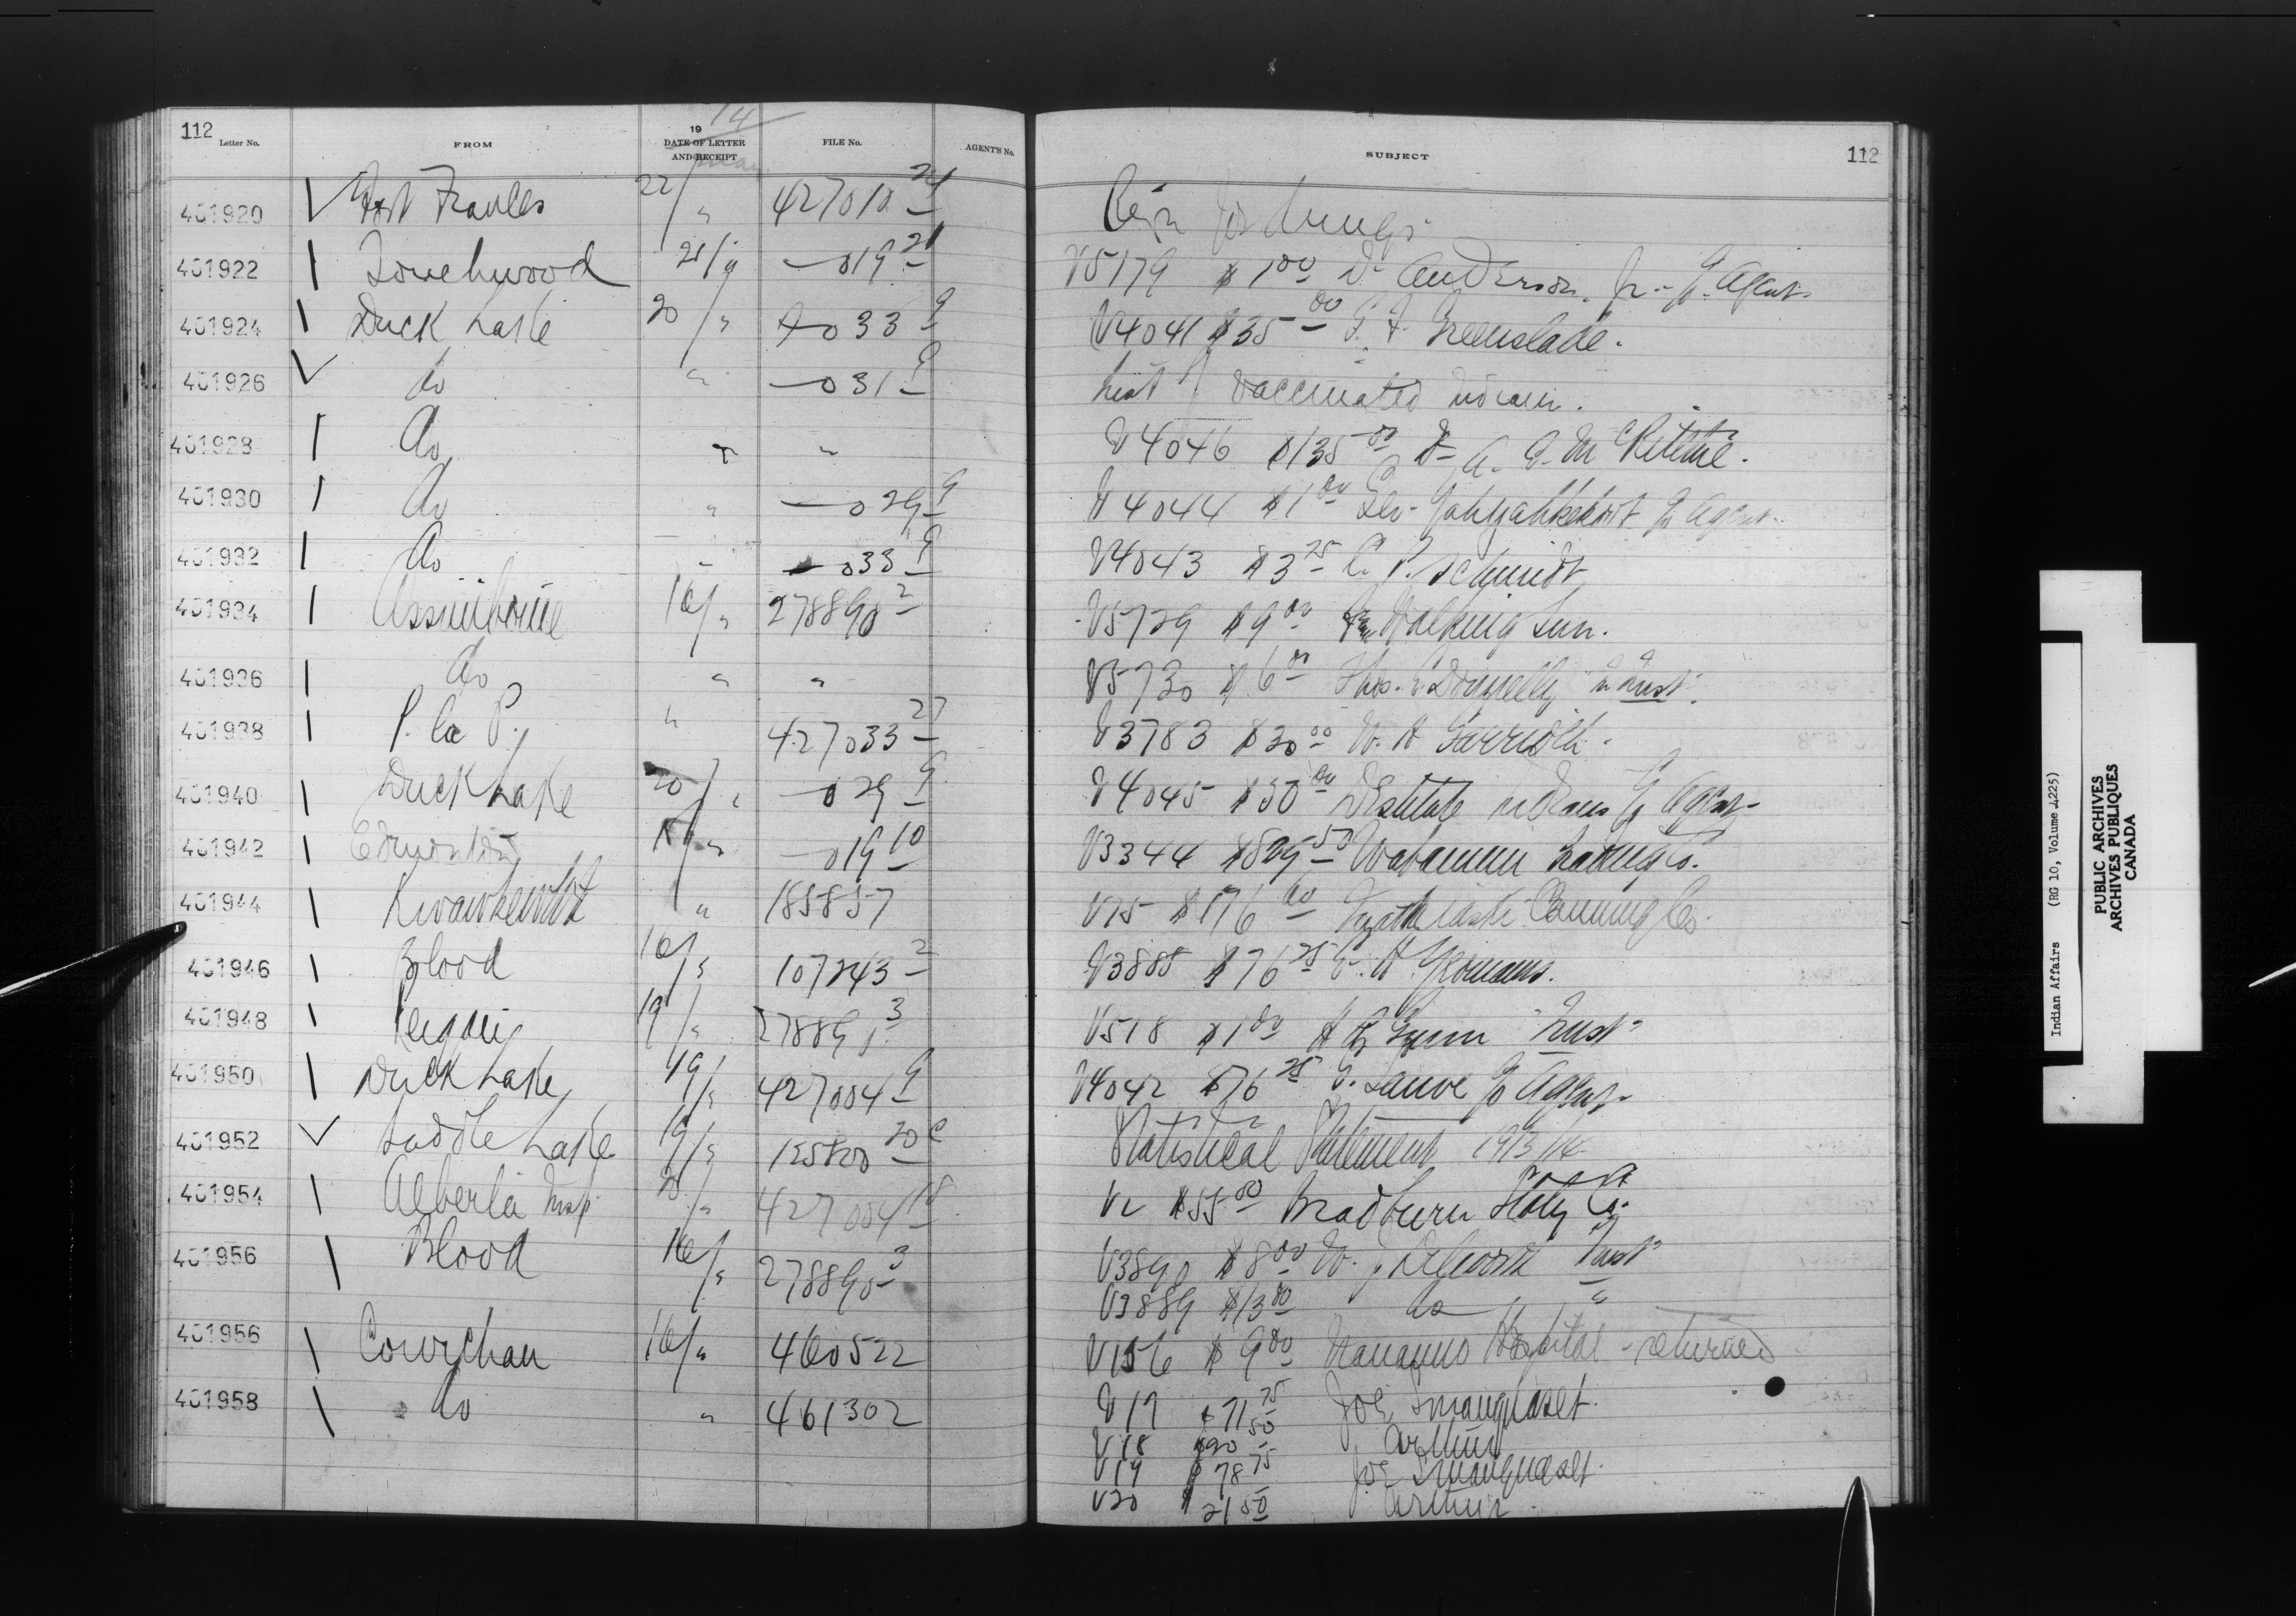 112 Letter No. FROM 19 14 DATE OF LETTER AND RECEIPT FILE No. AGENT'S No. SUBJECT 112
401920 Fort Frances 22/" 427010 24 for drugs
401922 Touchwood 21/" —019 21 V5179 $1 00 D. Anderson, Jr. Agent
401924 Duck Lake 20/" —033 9 V4041 $35 00 G. F. Greenslade.
401926 do " —031 9 List of vaccinated Indians.
401928 do " " V4046 $135 00 A.
401930 do " —029 9 V4044 $1 00 Agent
401932 do " —033 9 V4043 $3 25 C. P. Schmidt
401934 Assiniboine 16/" 278890 2 V5729 $9 00 Walking Sun.
401936 do " " V5730 $6 00 Thos. E. Donnelly Inst.
401938 P. la P. " 427033 27 V3783 $30 00 W. H.
401940 Duck Lake 20/" —029 9 V4045 $50 00 Destitute Indians Agent
401942 Edmonton 15/" —019 10 V3344 $829 50 Wabamun Co.
401944 Kwawkewlth " 185857 V75 $176 60 Canning Co.
401946 Blood 16/" 107243 2 V3888 $76 25 E. H. Yeomans.
401948 Peigan 19/" 278891 3 V518 $1 00 H Gunn Inst
401950 Duck Lake 19/" 427004 9 V4042 $76 25 G. Sauve Agent
401952 Saddle Lake 19/" 155800 20 c Statistical Statement 1913/14
401954 Alberta Insp 427004 18 V2 $55 00 Bradburn Co.
401956 Blood 16/" 278890 3 V3890 $8 00 W. J. Dilworth Inst
V3889 $13 00 do "
401956 Cowichan 16/" 460522 V156 $9 00 Nanaimo Hospital - returned
401958 do " 461302 V17 $71 75 Joe
V18 $20 50 Arthur
V19 $78 75 Joe
V20 $21 50 Arthur
Indian Affairs (RG 10, Volume 4225)
PUBLIC ARCHIVES
ARCHIVES PUBLIQUES
CANADA